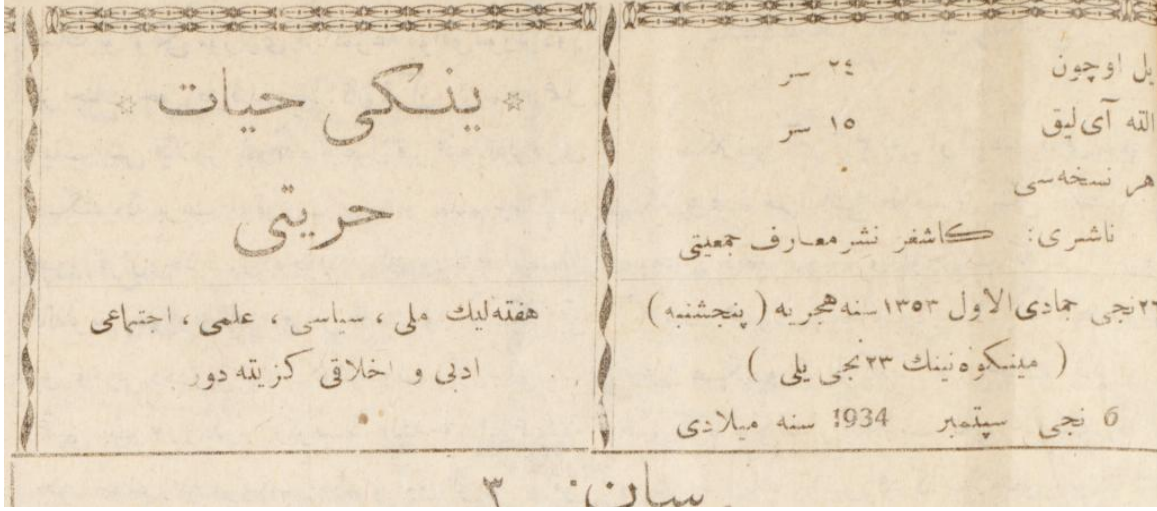 یل اوچون ٢٤ سر
آلته آی‌لیق ١٥ سر
هر نسخه‌سی
ناشری: کاشغر نشر معارف جمعیتی
نجی جمادی الاول ١٣٥٣ سنه هجریه ( پنجشنبه )
( مینکوه نینك ٢٣ نجی یلی )
6 نجی سپتمبر 1934 سنه میلادی
ینکی حیات
حریتی
هفته‌لیك ملی ، سیاسی ، علمی ، اجتماعی
ادبی و اخلاقی کزیته دور
سان: ٣